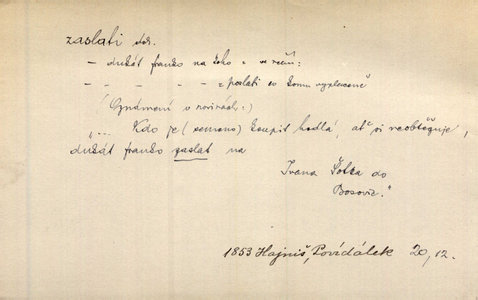 zaslati dok.
— dukát franko na koho e ve rčení:
— - - - - = poslati co komu vyplaceně
(Oznámení v novinách:)
"... Kdo je (semeno) koupit hodlá, ať si neobtěžuje,
dukát franko zaslat na
Ivana Šotka do
Bosovic."
1853 Hajniš, Povídálek 20, 12.